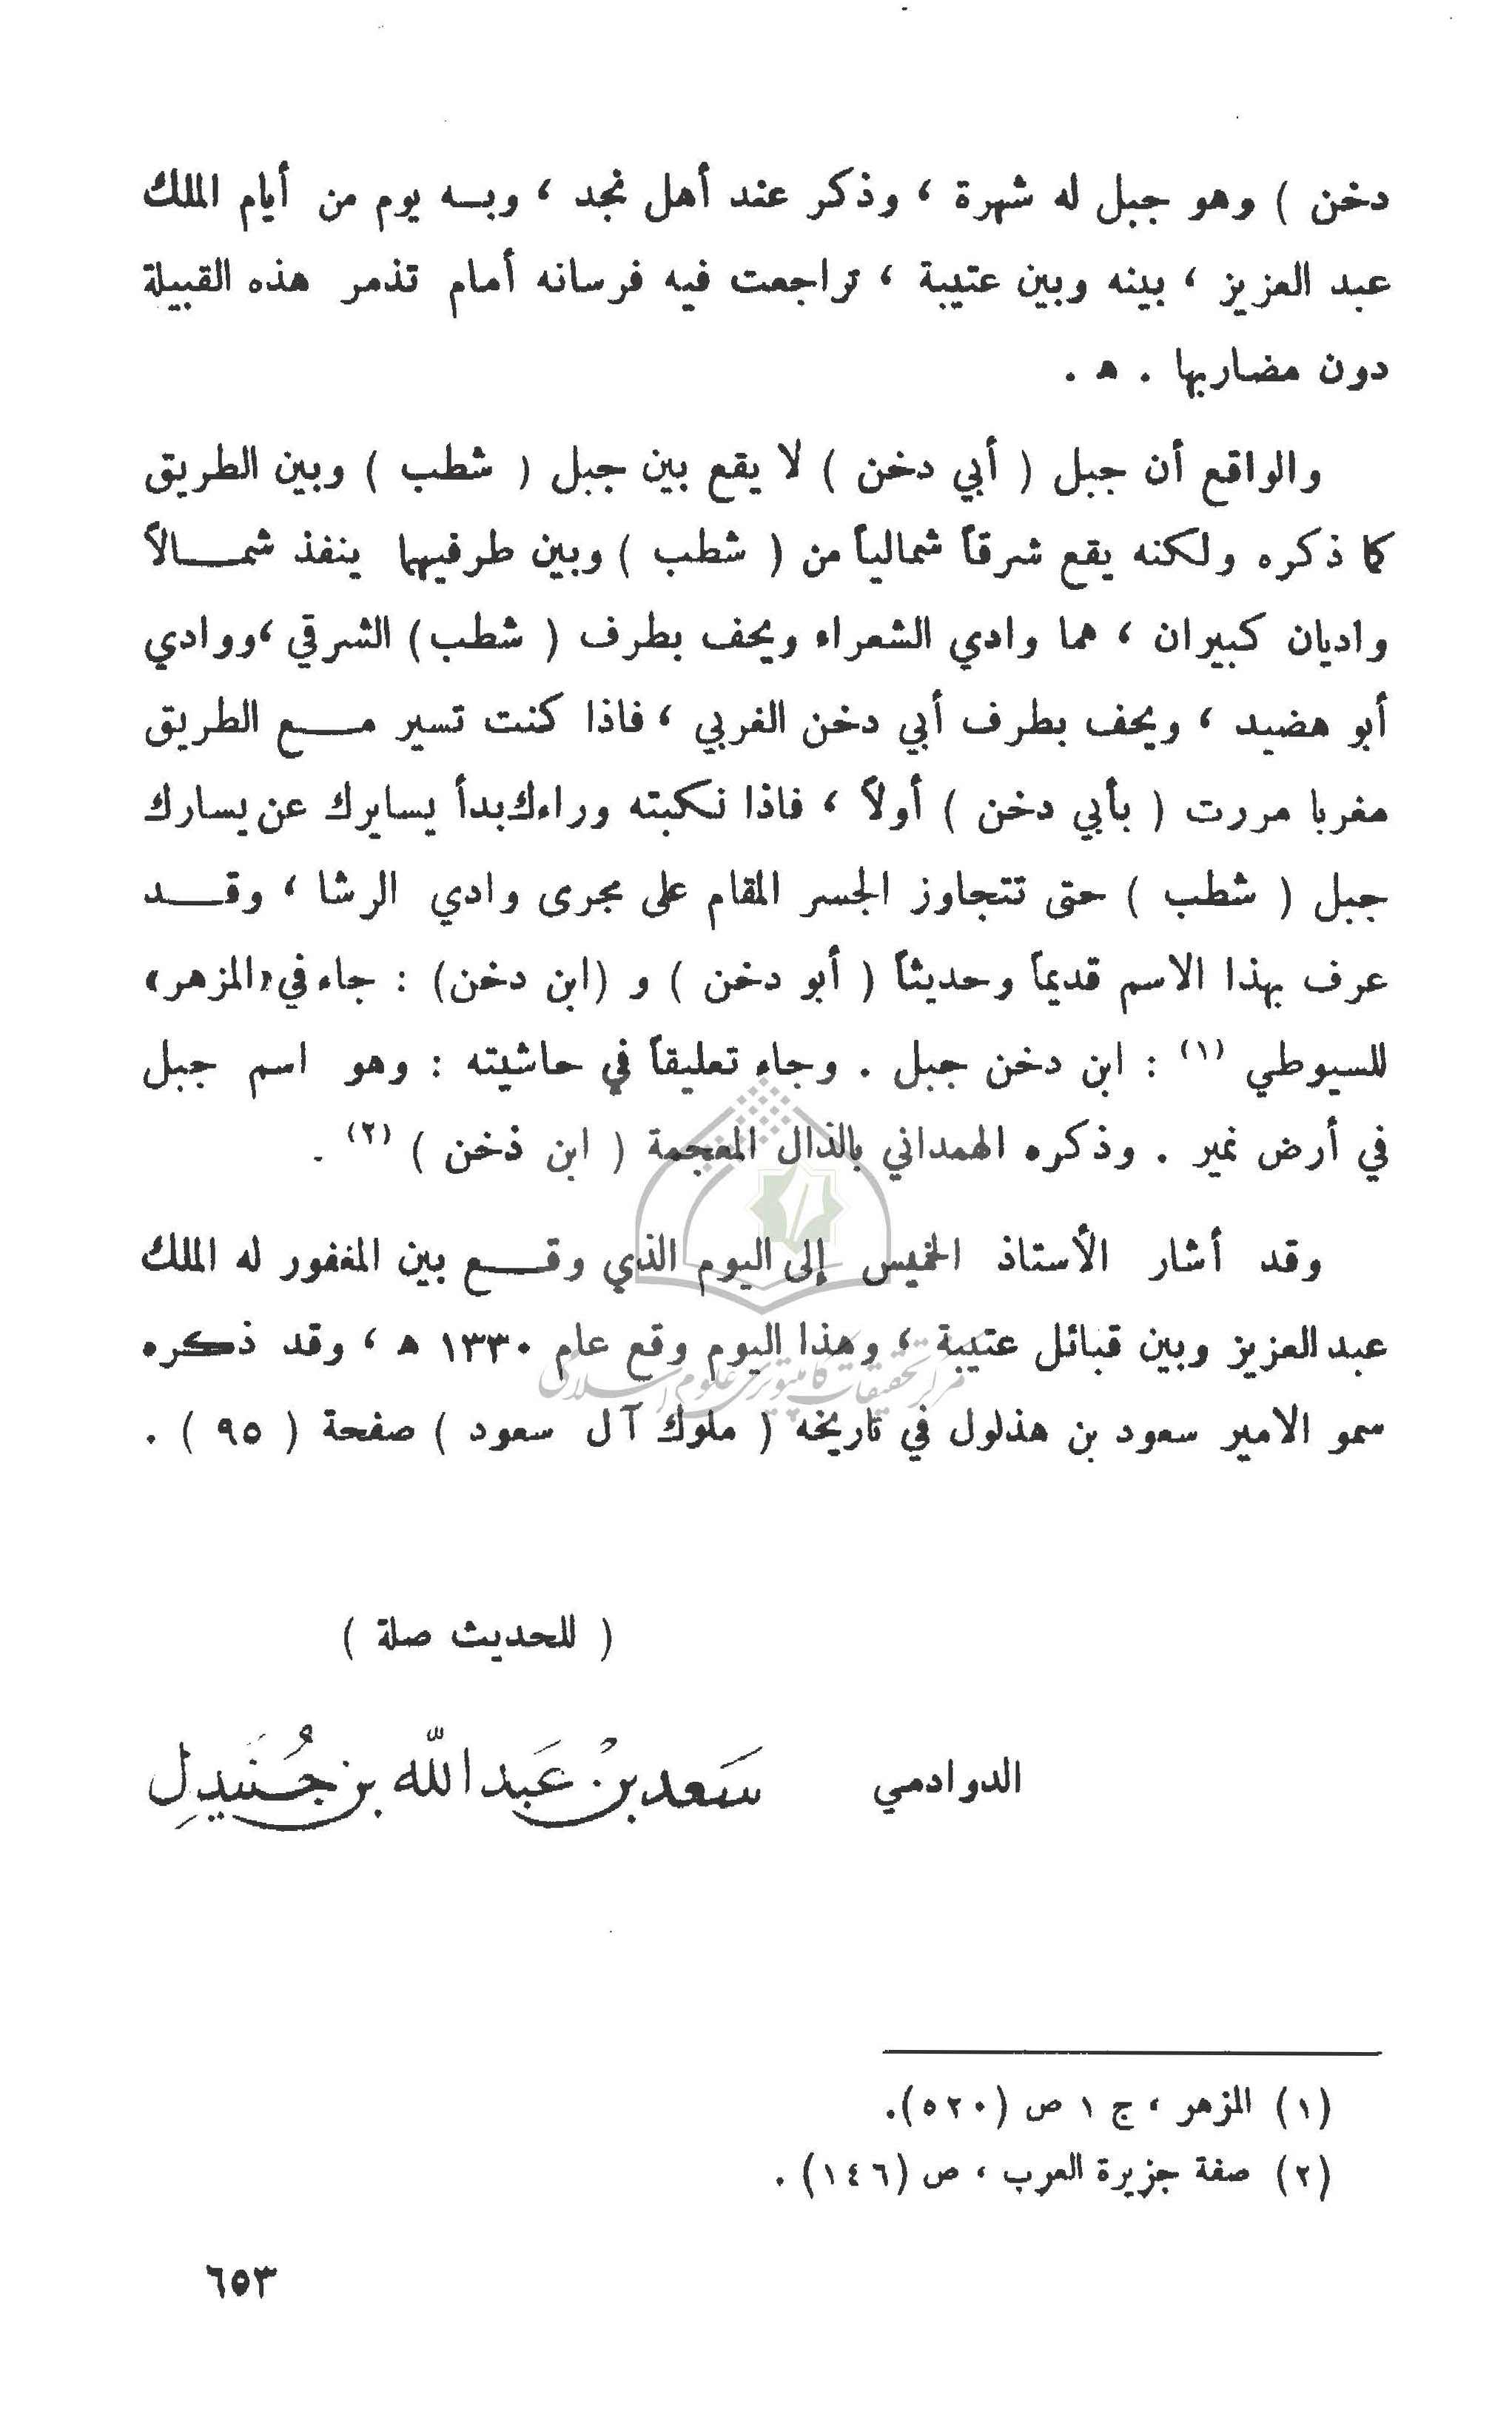 دخن ) وهو جبل له شهرة ، وذكر عند أهل نجد ، وبـه يوم من أيام الملك
عبد العزيز ، بينه وبين عتيبة ، تراجعت فيه فرسانه أمام تذمر هذه القبيلة
دون مضاربها . ه .
والواقع أن جبل ( أبي دخن ) لا يقع بين جبل ( شطب ) وبين الطريق
كما ذكره ولكنه يقع شرقاً شمالياً من ( شطب ) وبين طرفيهما ينفذ شمـالاً
واديان كبيران ، هما وادي الشعراء ويحف بطرف ( شطب ) الشرقي ، ووادي
أبو هضيد ، ويحف بطرف أبي دخن الغربي ، فاذا كنت تسير مـع الطريق
مغربا مررت ( بأبي دخن ) أولاً ، فاذا نكبته وراءك بدأ يسايرك عن يسارك
جبل ( شطب ) حتى تتجاوز الجسر المقام على مجرى وادي الرشا ، وقـد
عرف بهذا الاسم قديماً وحديثاً ( أبو دخن ) و (ابن دخن) : جاء في «المزهر»
للسيوطي (١) : ابن دخن جبل . وجاء تعليقاً في حاشيته : وهو اسم جبل
في أرض نمير . وذكره الهمداني بالذال المعجمة ( ابن ذخن ) (٢) .
وقد أشار الأستاذ الخميس إلى اليوم الذي وقـع بين المغفور له الملك
عبد العزيز وبين قبائل عتيبة ، وهذا اليوم وقع عام ١٣٣٠ ه ، وقد ذكره
سمو الامير سعود بن هذلول في تاريخه ( ملوك آل سعود ) صفحة ( ٩٥ ) .
مركز تحقيقات كامپيوتری علوم اسلامی
( للحديث صلة )
الدوادمي سَعد بنُ عَبد الله بن جُنَيدِل
(١) المزهر ، ج ١ ص (٥٢٠).
(٢) صفة جزيرة العرب ، ص (١٤٦) .
٦٥٣